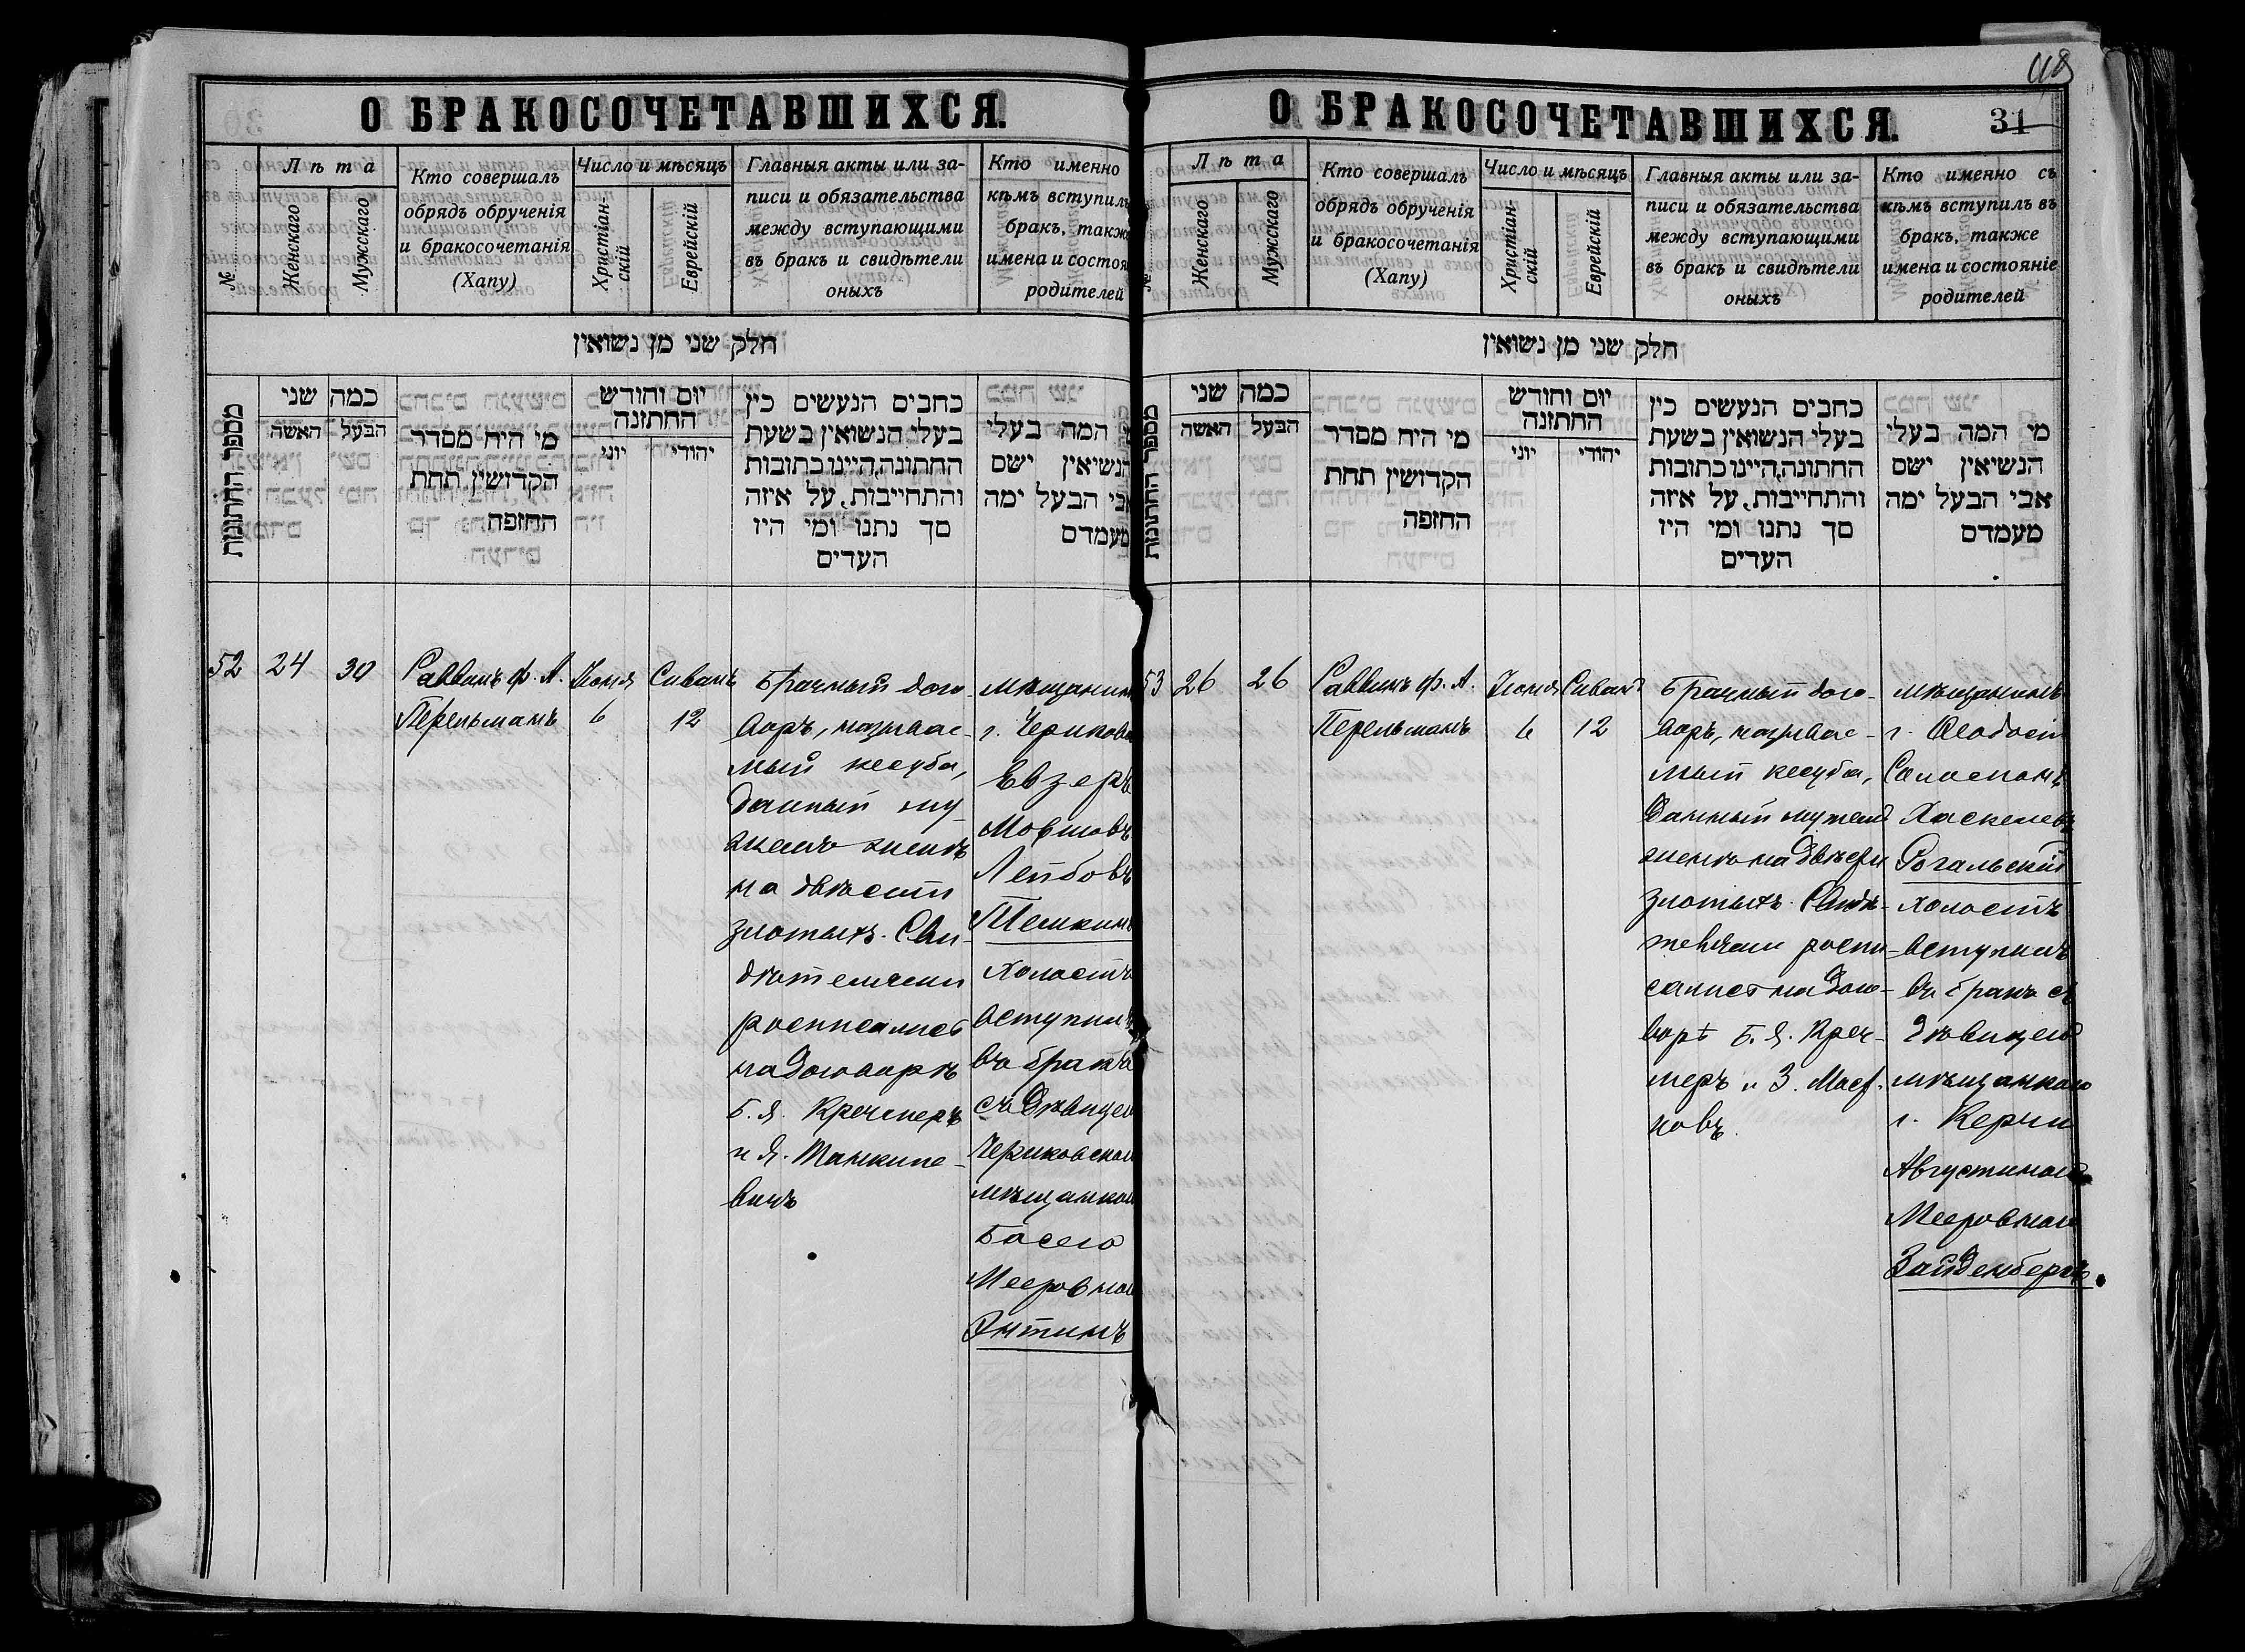 О БРАКОСОЧЕТАВШИХСЯ.
№
Лѣта
Женскаго
Мужскаго
Кто совершалъ
обрядъ обрученія
и бракосочетанія
(Хапу)
Число и мѣсяцъ
Христіан-
скій
Еврейскій
Главныя акты или за-
писи и обязательства
между вступающими
въ бракъ и свидѣтели
оныхъ
Кто именно
кѣмъ вступилъ
бракъ, также
имена и состоя
родителей
חלק שני מן נשואין
מספר החתונות
כמה שני
הבעל האשה
מי היח מסדר
הקדושין תחת
החופה
יום וחודש
החתונה
יהודי
יוני
כתבים הנעשים בין
בעלי הנשואין בשעת
החתונה, היינו כתובות
והתחייבות, על איזה
סך נתנו ומי היו
העדים
המה בעלי
הנשיאין ישם
אבי הבעל ימה
מעמדם
52
24
30
Раввинъ Ф. А.
Перельманъ
Іюня
6
Сиванъ
12
Брачный дого-
воръ, называе-
мый кесуба,
данный му-
жемъ женѣ
на двѣсти
злотыхъ. Сви-
дѣтелями
росписались
на договорѣ
Б. Я. Кречмеръ
и Я. Танкиле-
вичъ
мѣщанинъ
г. Черикова
Евзеръ
Мовшовъ
Лейбовъ
Пешкинъ
холостъ
вступилъ
въ бракъ
съ дѣвицею
Чериковскою
мѣщанкою
Басею
Мееровною
Энтинъ
48
О БРАКОСОЧЕТАВШИХСЯ.
31
№
Лѣта
Женскаго
Мужскаго
Кто совершалъ
обрядъ обрученія
и бракосочетанія
(Хапу)
Число и мѣсяцъ
Христіан-
скій
Еврейскій
Главныя акты или за-
писи и обязательства
между вступающими
въ бракъ и свидѣтели
оныхъ
Кто именно съ
кѣмъ вступилъ въ
бракъ, также
имена и состояніе
родителей
חלק שני מן נשואין
מספר החתונות
כמה שני
הבעל האשה
מי היח מסדר
הקדושין תחת
החופה
יום וחודש
החתונה
יהודי
יוני
כתבים הנעשים בין
בעלי הנשואין בשעת
החתונה, היינו כתובות
והתחייבות, על איזה
סך נתנו ומי היו
העדים
מי המה בעלי
הנשיאין ישם
אבי הבעל ימה
מעמדם
53
26
26
Раввинъ Ф. А.
Перельманъ
Іюня
6
Сиванъ
12
Брачный дого-
воръ, называе-
мый кесуба,
данный мужемъ
женѣ на двѣсти
злотыхъ. Свидѣ-
телями роспи-
сались на дого-
ворѣ Б. Я. Креч-
меръ и З. Мас.
ковъ.
мѣщанинъ
г. Ѳеодосіи
Соломонъ
Хаскелевъ
Рогальскій
холостъ
вступилъ
въ бракъ съ
дѣвицею
мѣщанкою
г. Керчи
Августиною
Мееровною
Зайденбергъ.